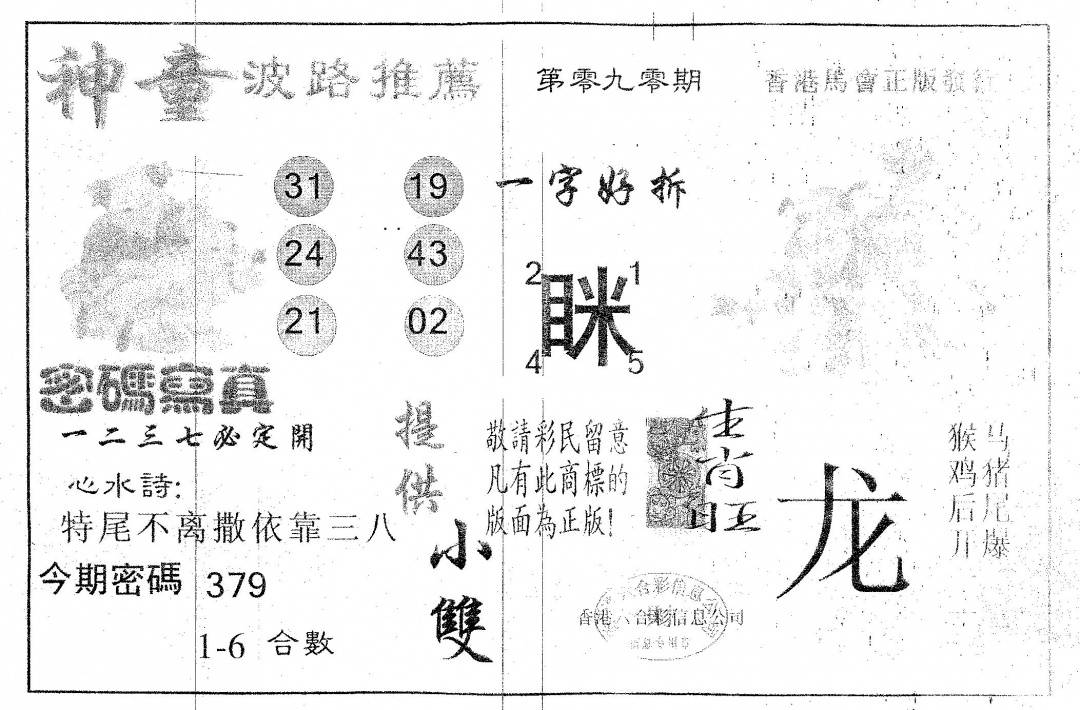 神童 波路推薦
第零九零期
香港馬會正版發行
31 19
24 43
21 02
一字好拆
2 1
眯
4 5
密碼寫真
一二三七必定開
心水詩:
特尾不离撒依靠三八
今期密碼 379
1-6 合數
提供
小雙
敬請彩民留意
凡有此商標的
版面為正版!
生肖旺
龙
马猪尾爆
猴鸡后开
香港六合彩信息公司